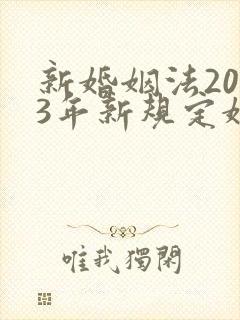 新婚姻法20
3年新规定女
唯我獨閑